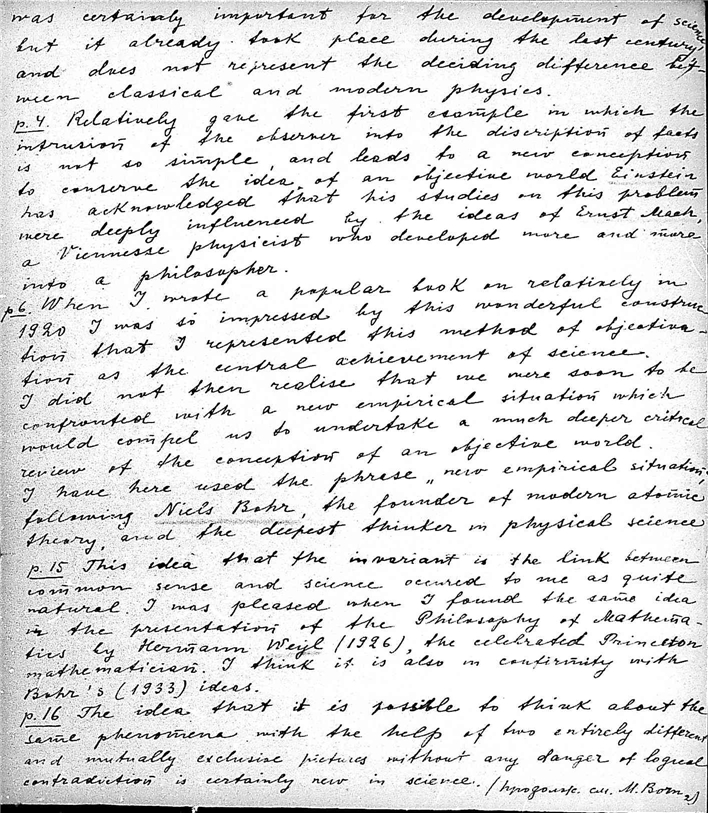 was certainly important for the development of science,
but it already took place during the last century,
and does not represent the deciding difference bet-
ween classical and modern physics.
p.4. Relatively gave the first example in which the
intrusion of the observer into the discription of facts
is not so simple, and leads to a new conception
to conserve the idea of an objective world Einstein
has acknowledged that his studies on this problem
were deeply influenced by the ideas of Ernst Mach,
a Viennesse physicist who developed more and more
into a philosopher.
p6. When I wrote a popular book on relatively in
1920 I was so impressed by this wonderful construc
tion that I represented this method of objectiva-
tion as the central achievement of science.
I did not then realise that we were soon to be
confronted with a new empirical situation which
would compel us to undertake a much deeper critical
review of the conception of an objective world.
I have here used the phrase „new empirical situation,"
following Niels Bohr, the founder of modern atomic
theory, and the deepest thinker in physical science
p.15 This idea that the invariant is the link between
common sense and science occured to me as quite
natural. I was pleased when I found the same idea
in the presentation of the Philosophy of Mathema-
tics by Hermann Weyl (1926), the celebrated Princeton
mathematician. I think it is also in confirmity with
Bohr's (1933) ideas.
p.16 The idea that it is possible to think about the
same phenomena with the help of two entirely different
and mutually exclusive pictures without any danger of logical
contradiction is certainly new in science. (продолж. см. M. Born 2)